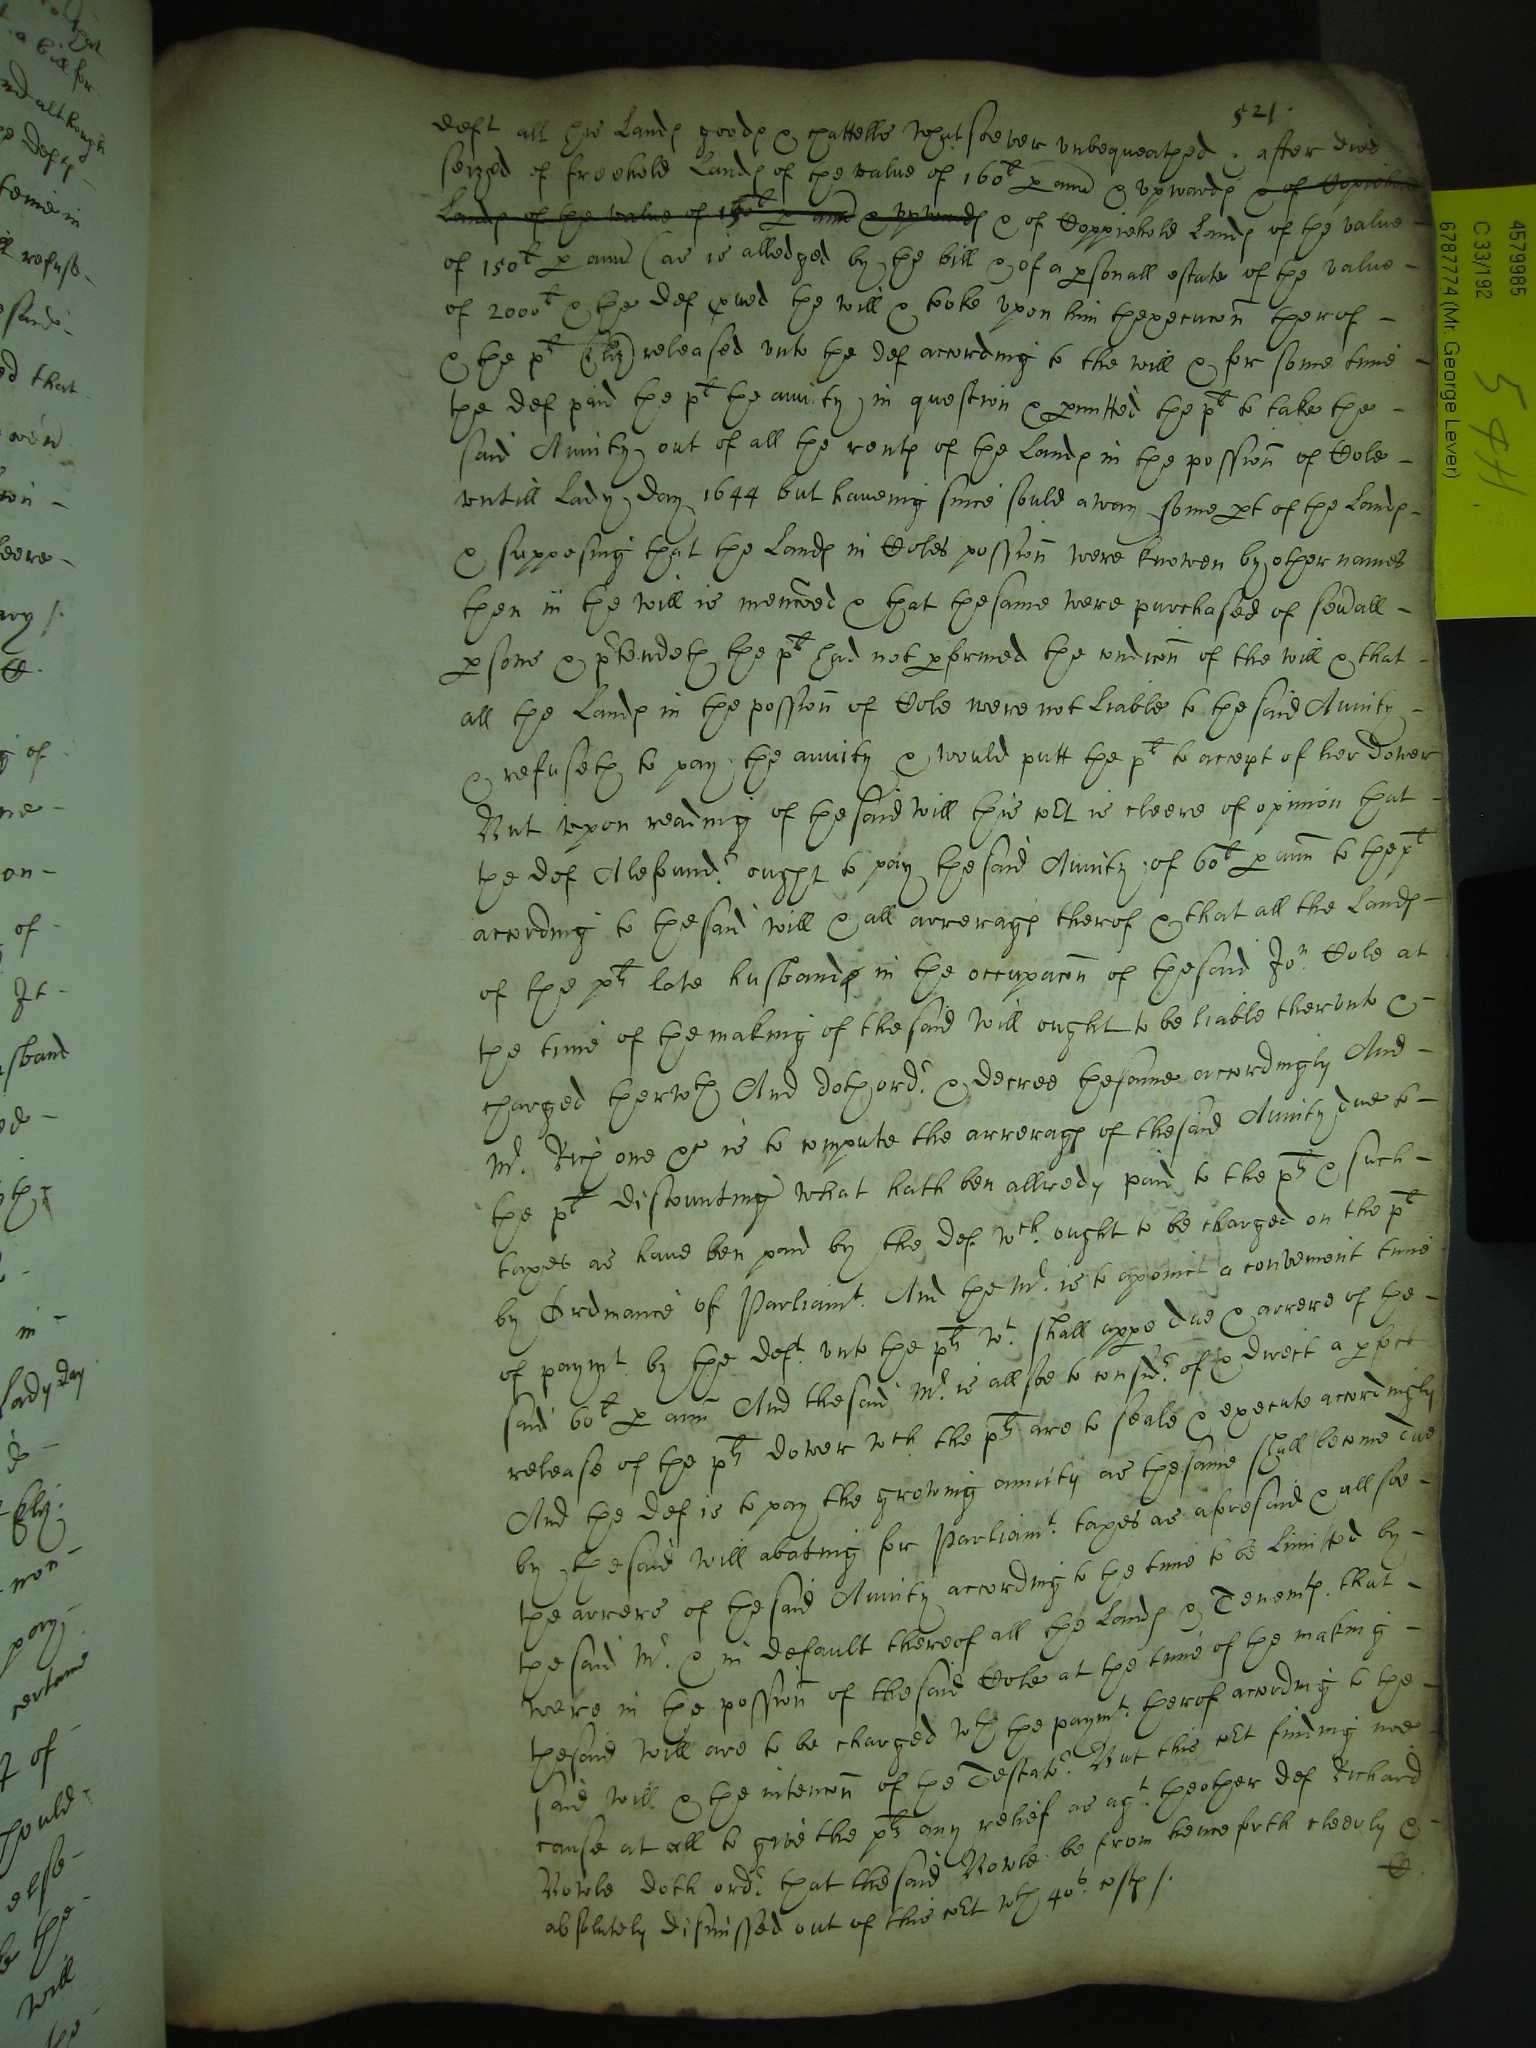 521.
deft all his Lands goods & chattells whatsoever unbequeathed & after died
seized of freehold Lands of the value of 160li p ann & upwards & of Coppiehold
Lands of the value of 150li p ann & upwards & of Coppiehold Lands of the value
of 150li p ann (as is alledged by the bill & of a psonall estate of the value
of 2000li & the def pved the will & tooke upon him thexecucon therof
& the pt (Eliz) released unto the def according to the will & for some time
the def paid the pt the anuity in question & pmitted the pt to take the
said Anuity out of all the rents of the Lands in the possion of Cole
untill Lady Day 1644 but haveing since sould away some pt of the Lands
& supposing that the Lands in Coles possion were knowen by other names
then in the will is menconed & that the same were purchased of sevall
psons & ptendeth the pt had not pformed the condicon of the will & that
all the Lands in the possion of Cole were not Liable to the said Anuity
& refuseth to pay the anuity & would putt the pt to accept of her dower
But upon reading of the said will this Cot is cleere of opinion that
the def ought to pay the said Anuity of 60li p ann to the pt
according to the said will & all arrerages therof & that all the Lands
of the pts late husbands in the occupacon of the said Jon Cole at
the time of the making of the said will ought to be liable therunto &
charged therwth And doth ordr & decree the same accordingly And
Mr. Rich one &c is to compute the arrerages of the said Anuity due to
the pt discounting what hath ben allredy paid to the pts & such
taxes as have ben paid by the def wch ought to be charged on the pt
by Ordinance of Parliamt. And the Mr. is to apoinct a convenient time
of paymt by the deft unto the pts wt shall appe due & arrere of the
said 60li p ann And the said Mr. is allsoe to considr of & direct a pfect
release of the pts dower wch the pts are to seale & execute accordingly
And the def is to pay the growing anuity as the same shall become due
by the said will abating for Parliamt. taxes as aforesaid & all soe
the arrers of the said Anuity according to the time to be Limitted by
the said Mr. & in default thereof all the Lands & Tenemts that
were in the possion of the said Cole at the time of the making
the said will are to be charged wth the paymt. therof according to the
said will & the intencon of the Testator. But this Cot finding noe
cause at all to give the pts any relief as agt. the other def Richard
Bowle doth ordr that the said Bowle be from henceforth cleerly &
absolutely dismissed out of this Cot wth 40s. costs /.
4579985
C 33/192
6787774 (Mr. George Lever)